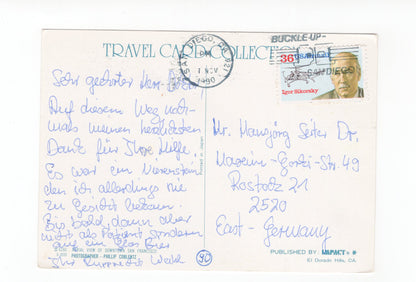 TRAVEL CARD COLLECTION
SAN DIEGO, CA 921
PM
1 NOV
1990
BUCKLE-UP-
SAN DIEGO
36 USAirmail
Igor Sikorsky
Sehr geehrter Herr
Auf diesem Weg noch-
mals meinen herzlichsten
Dank für Ihre Hilfe.
Es war ein Nierenstein
den ich allerdings nie
zu Gesicht bekam.
Bis bald, dann aber
nicht als Patient sondern
auf ein Glas Bier
Ihr
Mr. Hansjörg Seiter Dr.
Maxim-Gorki-Str. 49
Rostock 21
2520
East-Germany
90
AERIAL VIEW OF DOWNTOWN SAN FRANCISCO
PHOTOGRAPHER - PHILLIP COBLENTZ
Printed in Japan
PUBLISHED BY: IMPACT
El Dorado Hills, CA.